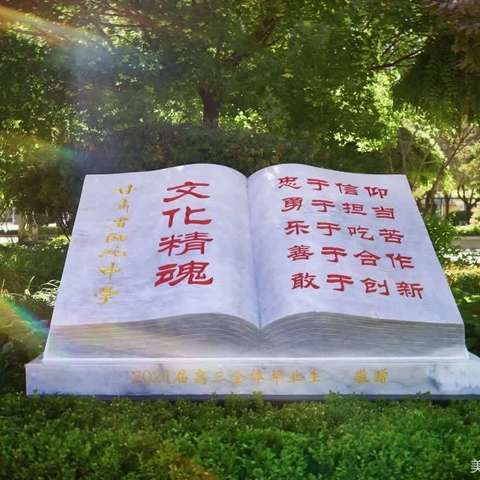 甘肃省中学
文化精魂
忠于信仰
勇于担当
乐于吃苦
善于合作
敢于创新
2021届高三全体毕业生 敬赠
美